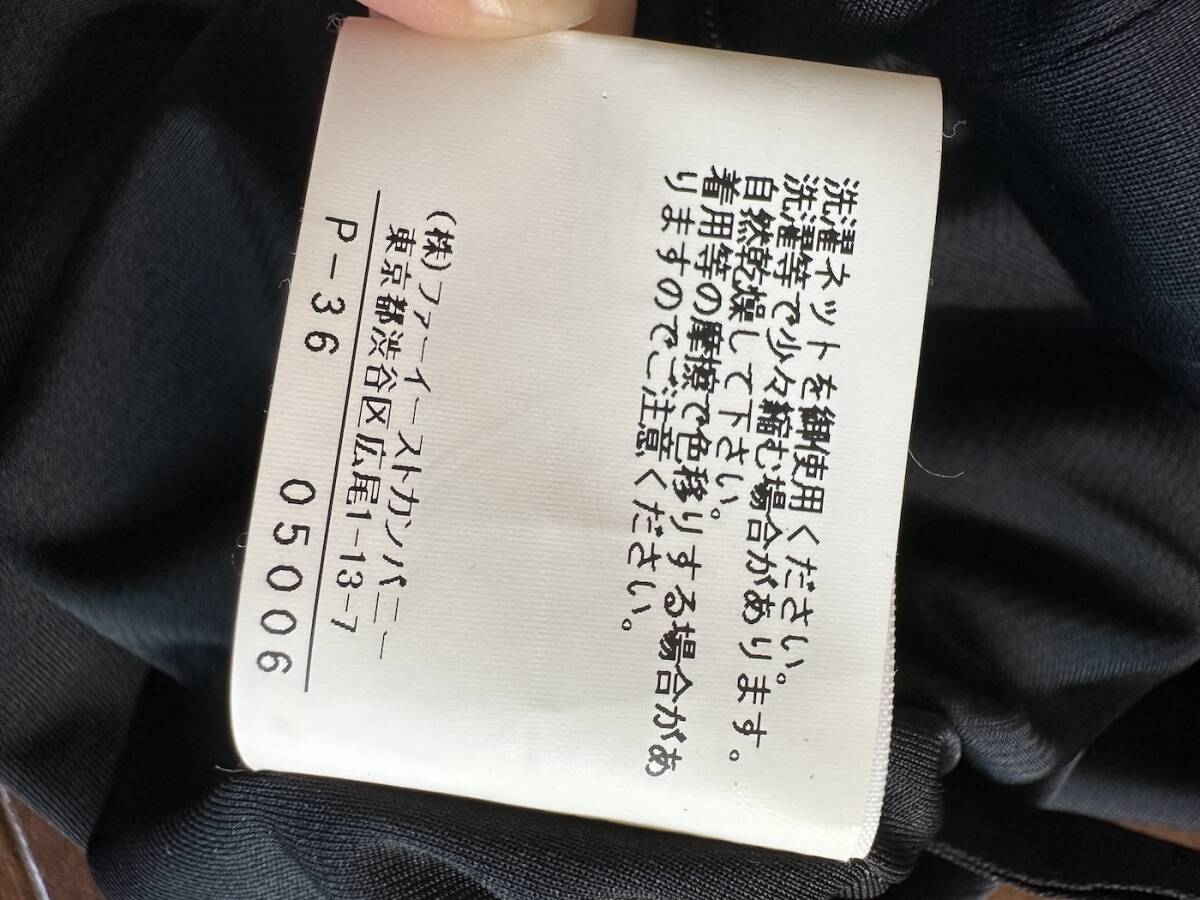 洗濯ネットを御使用ください。
洗濯等で少々縮む場合があります。
自然乾燥して下さい。
着用等の摩擦で色移りする場合があ
りますのでご注意ください。
(株)ファーイーストカンパニー
東京都渋谷区広尾1-13-7
P-36 05006